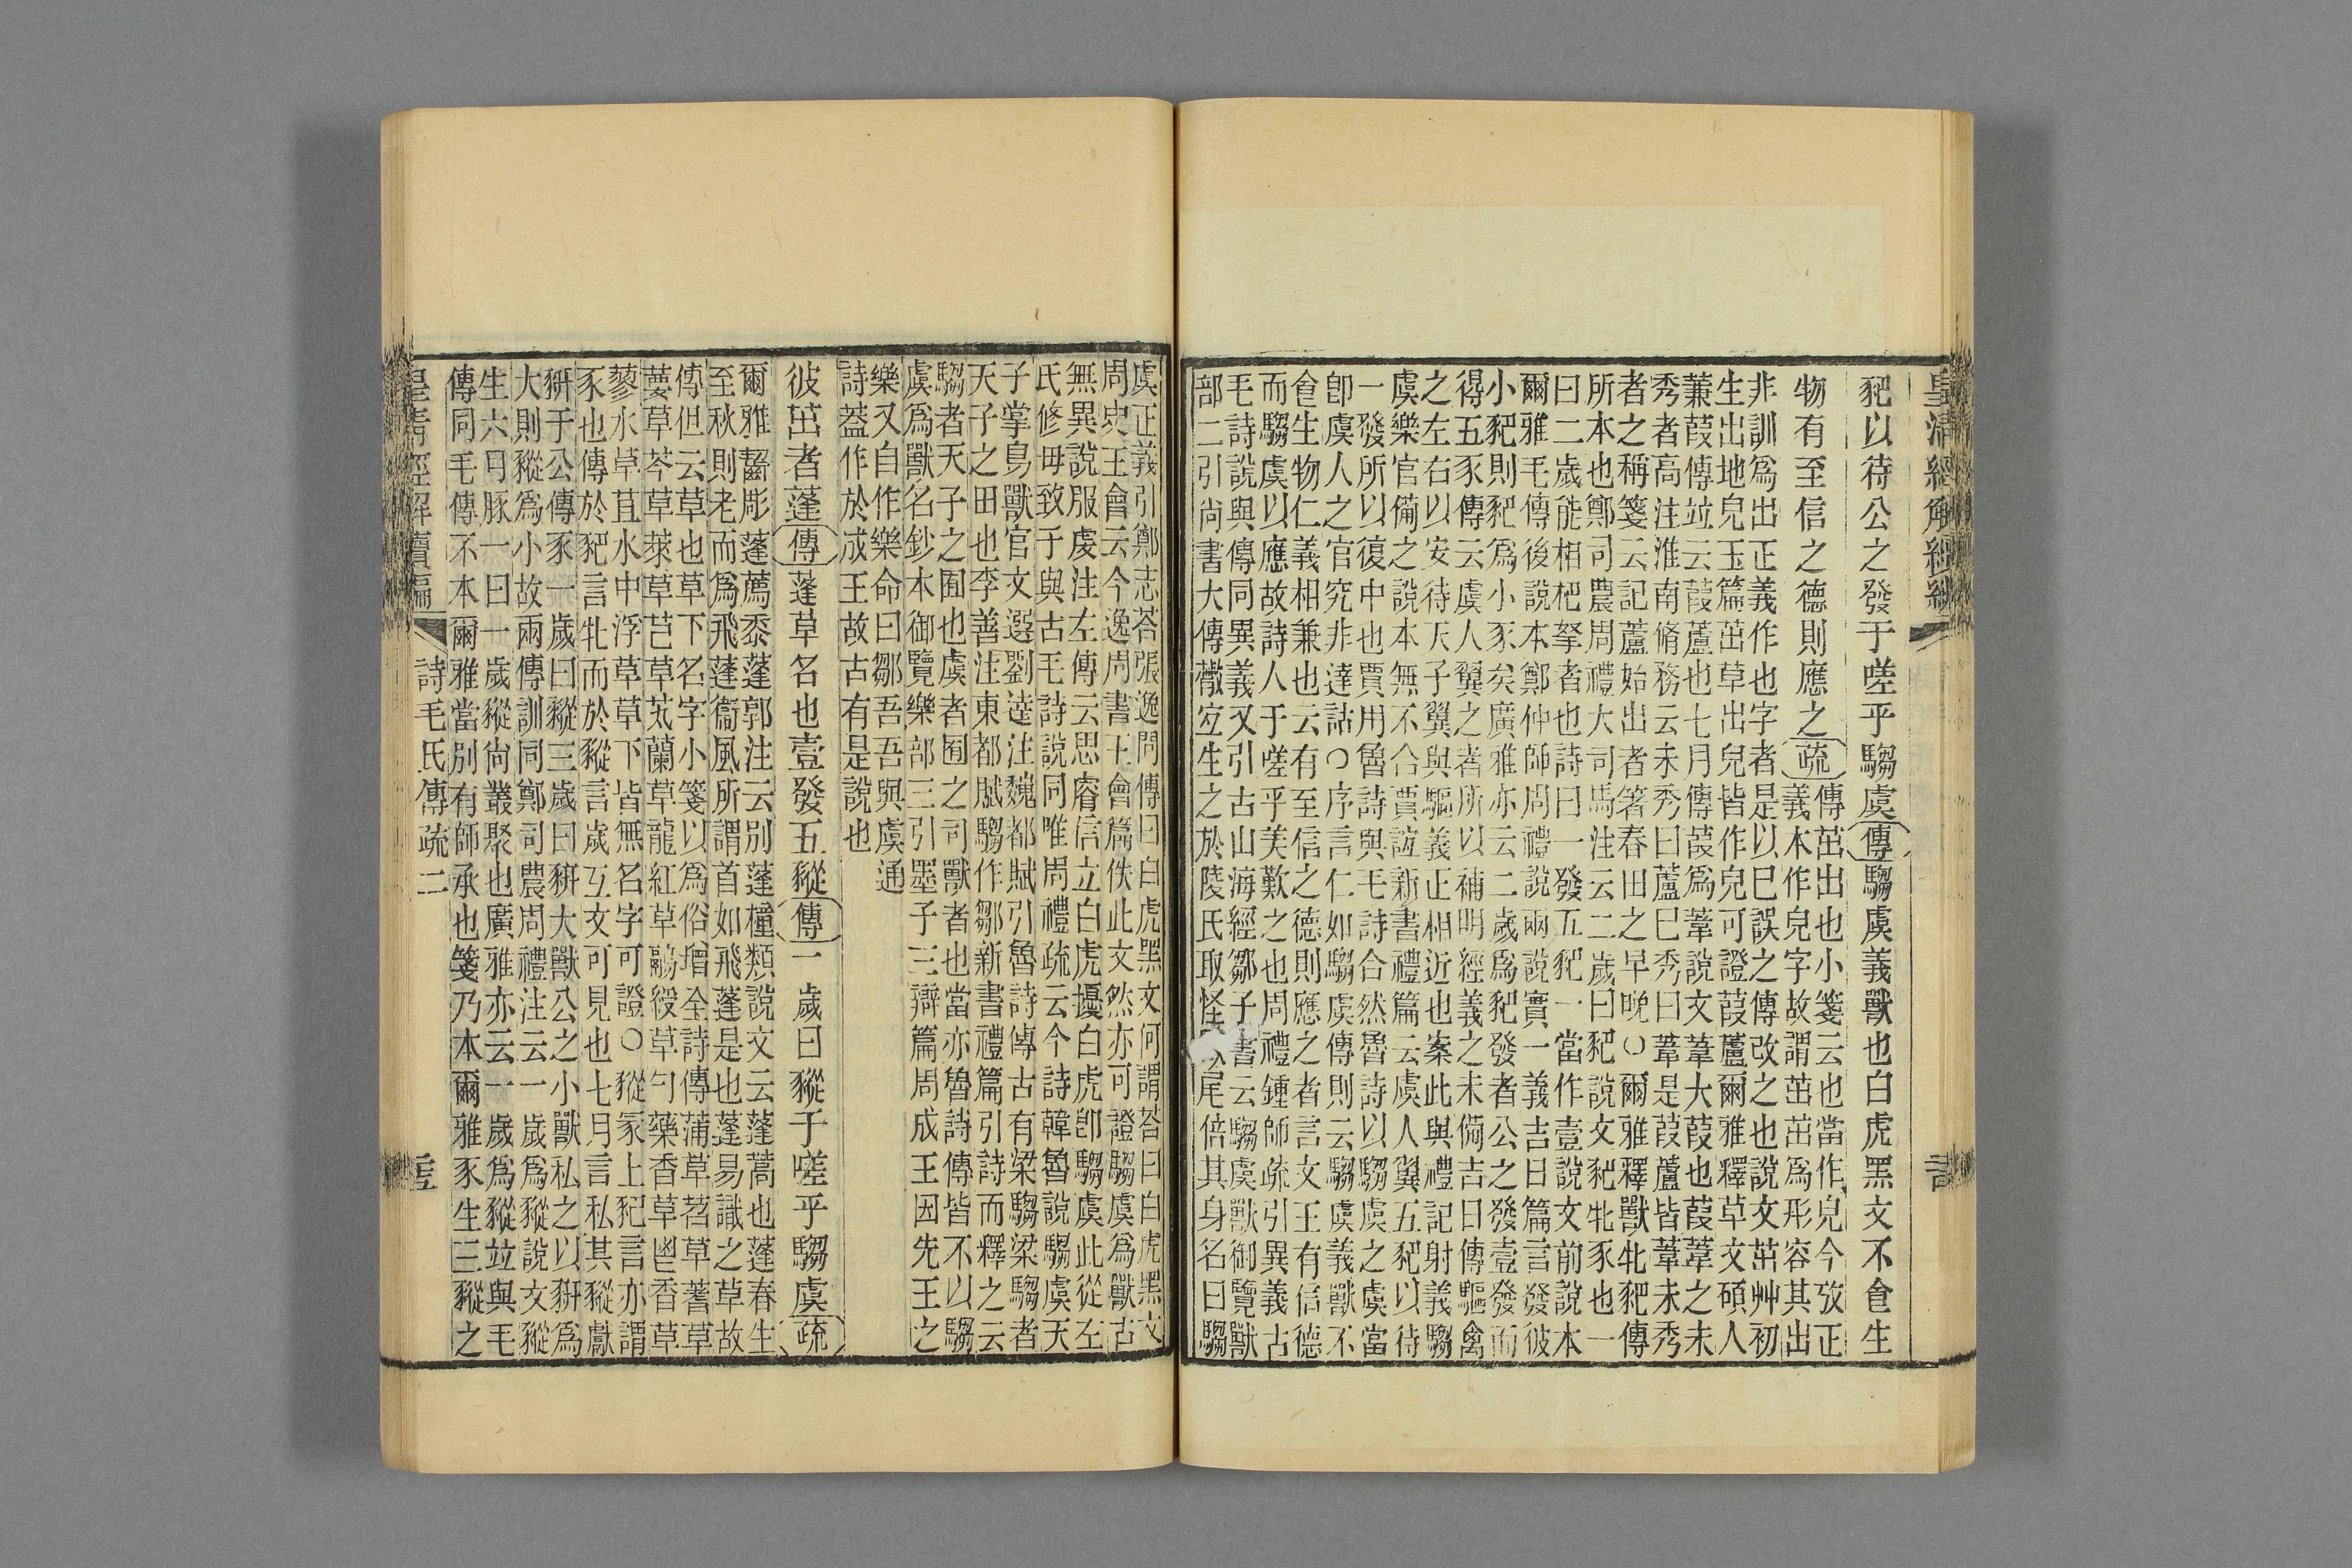 皇清經解續編
豝以待公之發于嗟乎騶虞傳騶虞義獸也白虎黑文不食生
物有至信之德則應之疏
傳茁出也小箋云也當作皃今攷正
義本作皃字故謂茁茁爲形容其出
非訓爲出正義作也字者是以巳誤之傳改之也說文茁艸初
生出地皃玉篇茁草出皃皆作皃可證葭蘆爾雅釋草文碩人
蒹葭傳竝云葭蘆也七月傳葭爲葦說文葦大葭也葭葦之未
秀者高注淮南脩務云未秀曰蘆巳秀曰葦是葭蘆皆葦未秀
者之稱箋云記蘆始出者箸春田之早晚○爾雅釋獸牝豝傳
所本也鄭司農周禮大司馬注云二歲曰豝說文豝牝豕也一
曰二歲能相杷拏者也詩曰一發五豝一當作壹說文前說本
爾雅毛傳後說本鄭仲師周禮說兩說實一義吉日篇言發彼
小豝則豝爲小豕矣廣雅亦云二歲爲豝發者公之發壹發而
得五豕傳云虞人翼之者所以補明經義之未備吉日傳驅禽
之左右以安待天子翼與驅義正相近也案此與禮記射義騶
虞樂官備之說本無不合賈誼新書禮篇云虞人翼五豝以待
一發所以復中也賈用魯詩與毛詩合然魯詩以騶虞之虞當
卽虞人之官究非達詁○序言仁如騶虞傳則云騶虞義獸不
食生物仁義相兼也云有至信之德則應之者言文王有信德
而騶虞以應故詩人于嗟乎美歎之也周禮鍾師疏引異義古
毛詩說與傳同異義又引古山海經鄒子書云騶虞獸御覽獸
部二引尚書大傳散宜生之於陵氏取怪尾倍其身名曰騶
虞正義引鄭志荅張逸問傳曰白虎黑文何謂荅曰白虎黑文
周史王會云今逸周書王會篇佚此文然亦可證騶虞爲獸古
無異說服虔注左傳云思睿信立白虎擾白虎卽騶虞此從左
氏修毋致子與古毛詩說同唯周禮疏云今詩韓魯說騶虞天
子掌鳥獸官文選劉逵注魏都賦引魯詩傳古有梁騶梁騶者
天子之田也李善注東都賦騶作鄒新書禮篇引詩而釋之云
騶者天子之囿也虞者囿之司獸者也當亦魯詩傳皆不以騶
虞爲獸名鈔本御覽樂部三引墨子三辯篇周成王因先王之
樂又自作樂命曰鄒吾吾與虞通
詩葢作於成王故古有是說也
彼茁者蓬傳蓬草名也壹發五豵傳一歲曰豵于嗟乎騶虞疏
爾雅齧彫蓬薦黍蓬郭注云別蓬種類說文云蓬蒿也蓬春生
至秋則老而爲飛蓬衞風所謂首如飛蓬是也蓬易識之草故
傳但云草也草下名字小箋以爲俗增全詩傳蒲草苕草蓍草
蔓草芩草萊草芑草芄蘭草龍紅草鷊綬草勺藥香草鬯香草
蓼水草苴水中浮草草下皆無名字可證○豵豕上豝言亦謂
豕也傳於豝言牝而於豵言歲互文可見也七月言私其豵獻
豜于公傳豕一歲曰豵三歲曰豜大獸公之小獸私之以豜爲
大則豵爲小故兩傳訓同鄭司農周禮注云一歲爲豵說文豵
生六月豚一曰一歲豵尙叢聚也廣雅亦云一歲爲豵竝與毛
傳同毛傳不本爾雅當別有師承也箋乃本爾雅豕生三豵之
皇清經解續編
詩毛氏傳疏二